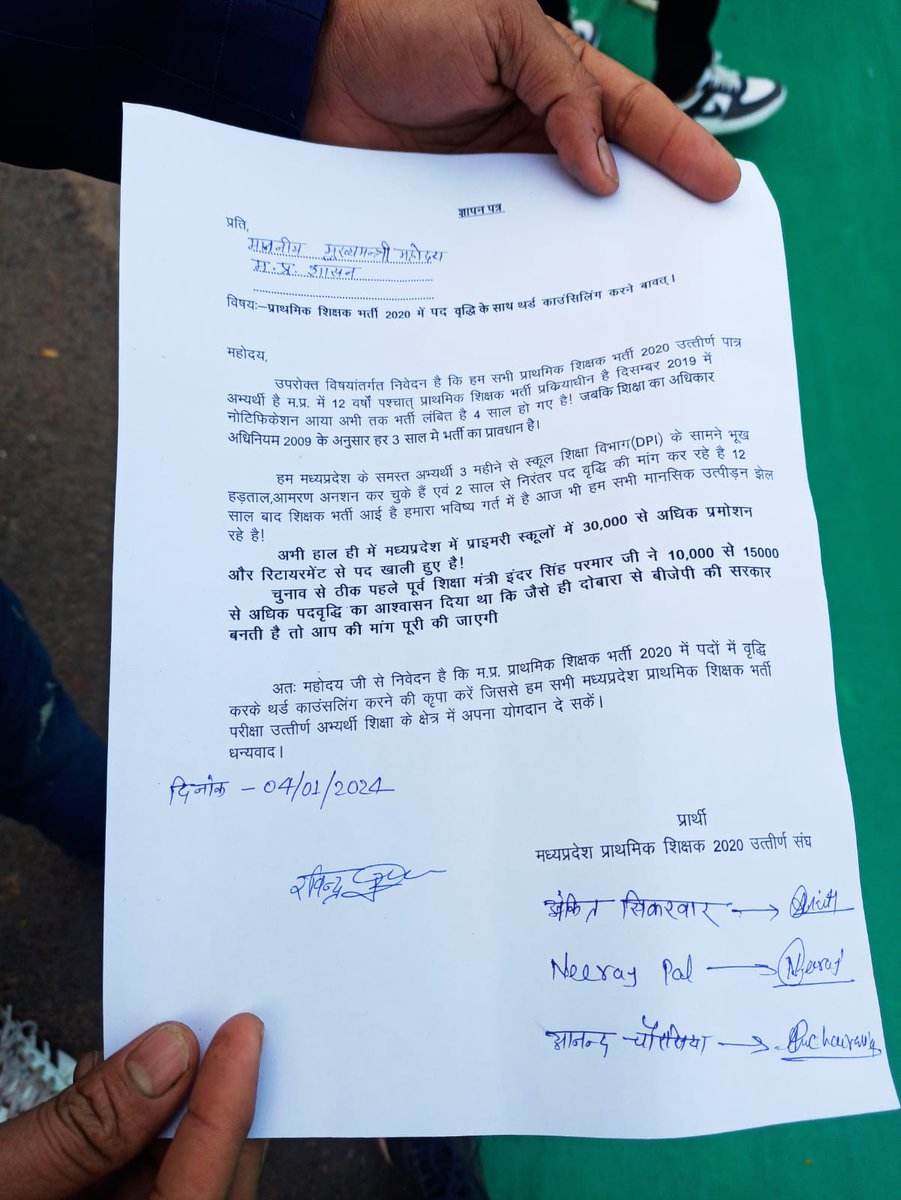 ज्ञापन पत्र
प्रति,
माननीय मुख्यमन्त्री महोदय
म.प्र. शासन
विषयः–प्राथमिक शिक्षक भर्ती 2020 में पद वृद्धि के साथ थर्ड काउंसिलिंग करने बावत्।
महोदय,
उपरोक्त विषयांतर्गत निवेदन है कि हम सभी प्राथमिक शिक्षक भर्ती 2020 उत्तीर्ण पात्र
अभ्यर्थी है म.प्र. में 12 वर्षों पश्चात् प्राथमिक शिक्षक भर्ती प्रकियाधीन है दिसम्बर 2019 में
नोटिफिकेशन आया अभी तक भर्ती लंबित है 4 साल हो गए है! जबकि शिक्षा का अधिकार
अधिनियम 2009 के अनुसार हर 3 साल मे भर्ती का प्रावधान है।
हम मध्यप्रदेश के समस्त अभ्यर्थी 3 महीने से स्कूल शिक्षा विभाग(DPI) के सामने भूख
हड़ताल,आमरण अनशन कर चुके हैं एवं 2 साल से निरंतर पद वृद्धि की मांग कर रहे है 12
साल बाद शिक्षक भर्ती आई है हमारा भविष्य गर्त में है आज भी हम सभी मानसिक उत्पीड़न झेल
रहे है!
अभी हाल ही में मध्यप्रदेश में प्राइमरी स्कूलों में 30,000 से अधिक प्रमोशन
और रिटायरमेंट से पद खाली हुए है!
चुनाव से ठीक पहले पूर्व शिक्षा मंत्री इंदर सिंह परमार जी ने 10,000 से 15000
से अधिक पदवृद्धि का आश्वासन दिया था कि जैसे ही दोबारा से बीजेपी की सरकार
बनती है तो आप की मांग पूरी की जाएगी
अतः महोदय जी से निवेदन है कि म.प्र. प्राथमिक शिक्षक भर्ती 2020 में पदों में वृद्धि
करके थर्ड काउंसलिंग करने की कृपा करें जिससे हम सभी मध्यप्रदेश प्राथमिक शिक्षक भर्ती
परीक्षा उत्तीर्ण अभ्यर्थी शिक्षा के क्षेत्र में अपना योगदान दे सकें।
धन्यवाद।
दिनांक - 04/01/2024
प्रार्थी
मध्यप्रदेश प्राथमिक शिक्षक 2020 उत्तीर्ण संघ
रविन्द्र
अंकित सिकरवार → Ankit
Neeraj Pal → Neeraj
आनन्द चौरसिया →